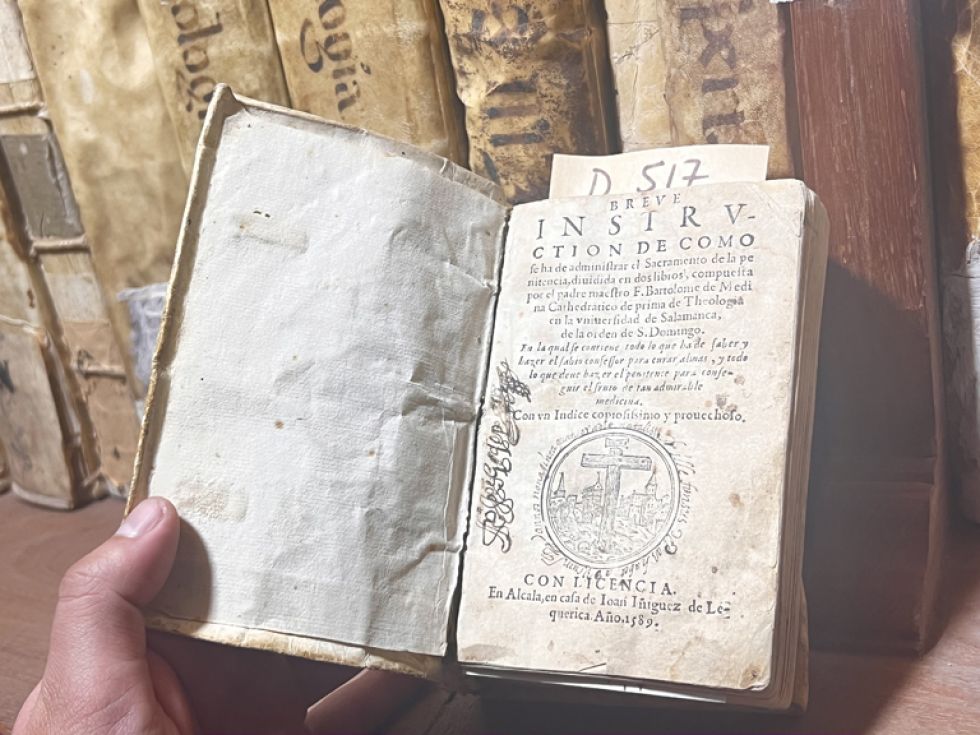 olog
ogia
XII
D 517
BREVE
INSTRV-
CTION DE COMO
se ha de administrar el Sacramento de la pe
nitencia, diuidida en dos libros, compuesta
por el padre maestro F. Bartolome de Medi
na Cathedratico de prima de Theologia
en la vniuersidad de Salamanca,
de la orden de S. Domingo.
En la qual se contiene todo lo que ha de saber y
hazer el sabio confessor para curar almas, y todo
lo que deue hazer el penitente para conse-
guir el fruto de tan admirable
medicina.
Con vn Indice copiosissimo y prouechoso.
CON LICENCIA.
En Alcala, en casa de Ioan Iñiguez de Le-
querica. Año. 1589.